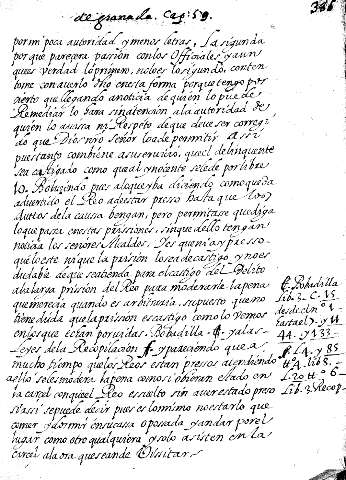 de granada. Cap. 59.
por mi poca autoridad y menos letras, La segunda
por que parezca passion con los officiales y aun
ques verdad lo primero, no lo es lo segundo, conten
tome con averlo dicho en esta forma porque tengo por
cierto que llegando a noticia de quien lo puede
Remediar lo hara sin atencion a la autoridad de
quien lo avisa ni Respeto de que deve ser corregi
do que Dios nro Señor lo a de permitir assi
puesto combiene a su servicio, que el delinquente
sea castigado como qual y nocente se de por libre
10. Bolviendo pues a lo que yba diciendo como queda
advertido el Reo a de estar presso hasta que los
auttos de la causa vengan, pero permitase que diga
lo que passa en estas prissiones, sin que dello tengan
noticia los señores Alcaldes.
que lo este ni que la prission lo sea de castigo, y no es
dudable de que se atienda para el castigo del Delito
a la larga prission del Reo para moderarle la pena
que merecia quando es arbitraria, supuesto que no
tiene duda que la prission es castigo como lo vemos
en los que estan por vidas. Bobadilla y a las
Leyes de la Recopilacion y pareciendo que a
mucho tiempo que los Reos estan pressos aun siendo
assi lo se les modera la pena como si ubieran estado en
la carcel con que el Reo es suelto sin aver estado preso
y assi se puede decir pues es lo mismo no estarlo que
comer y dormir en su cassa o possada y andar por el
lugar como otro qualquiera y solo asisten en la
carcel a la ora que se an de Vissitar
Bobadilla
Lib. 3. C. 15
desde el nº 1
hasta el y 44
44. y 133
L 4. y 85
tt 4. lib 8
L. 20 tt º 6
Lib. 3. Recop.